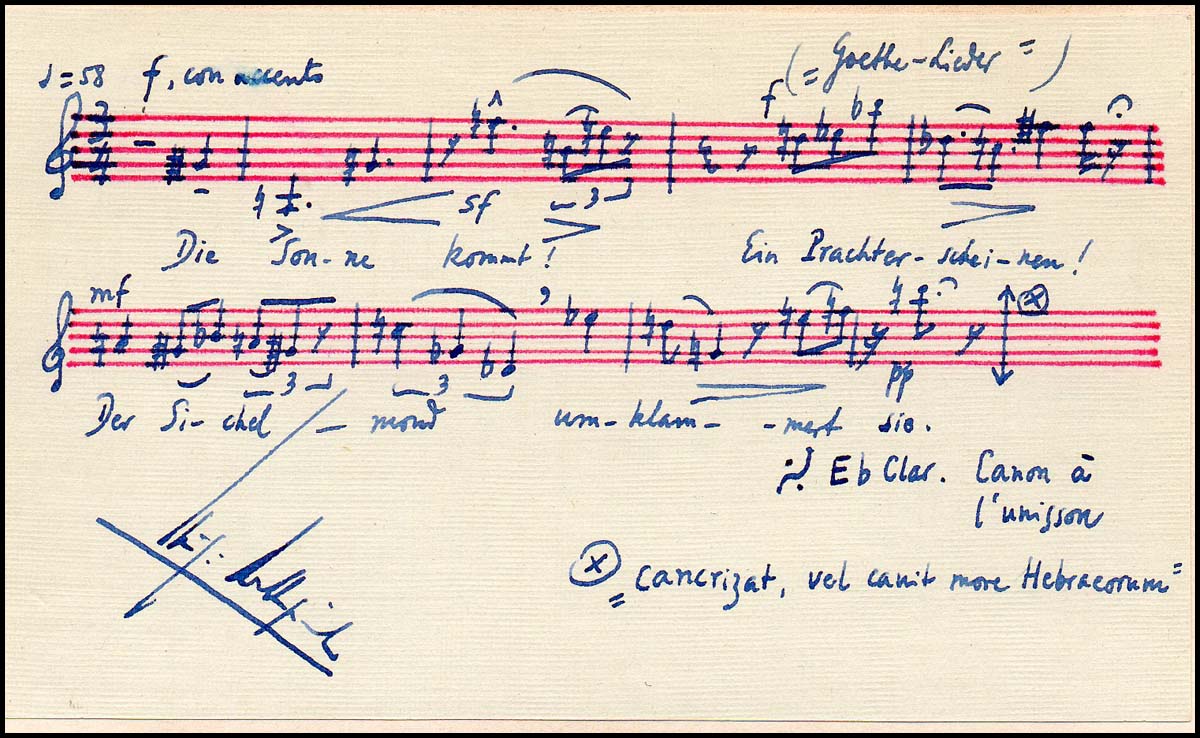 ♩=58 f, con accento („Goethe-Lieder")
f
sf 3
Die Son-ne kommt! Ein Prachter-schei-nen!
mf
3 3 pp
Der Si-chel - mond um-klam- -mert sie.
Eb Clar. Canon à
l'unisson
(x) „cancrizat, vel canit more Hebraeorum"